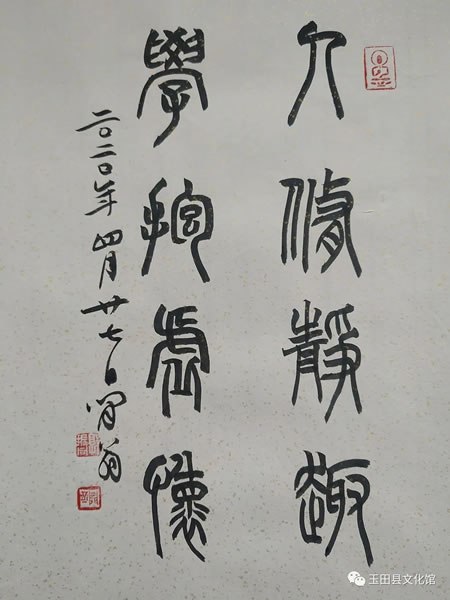 人脩靜趣
學抱虛懷
二〇二〇年四月廿七日翁
玉田县文化馆